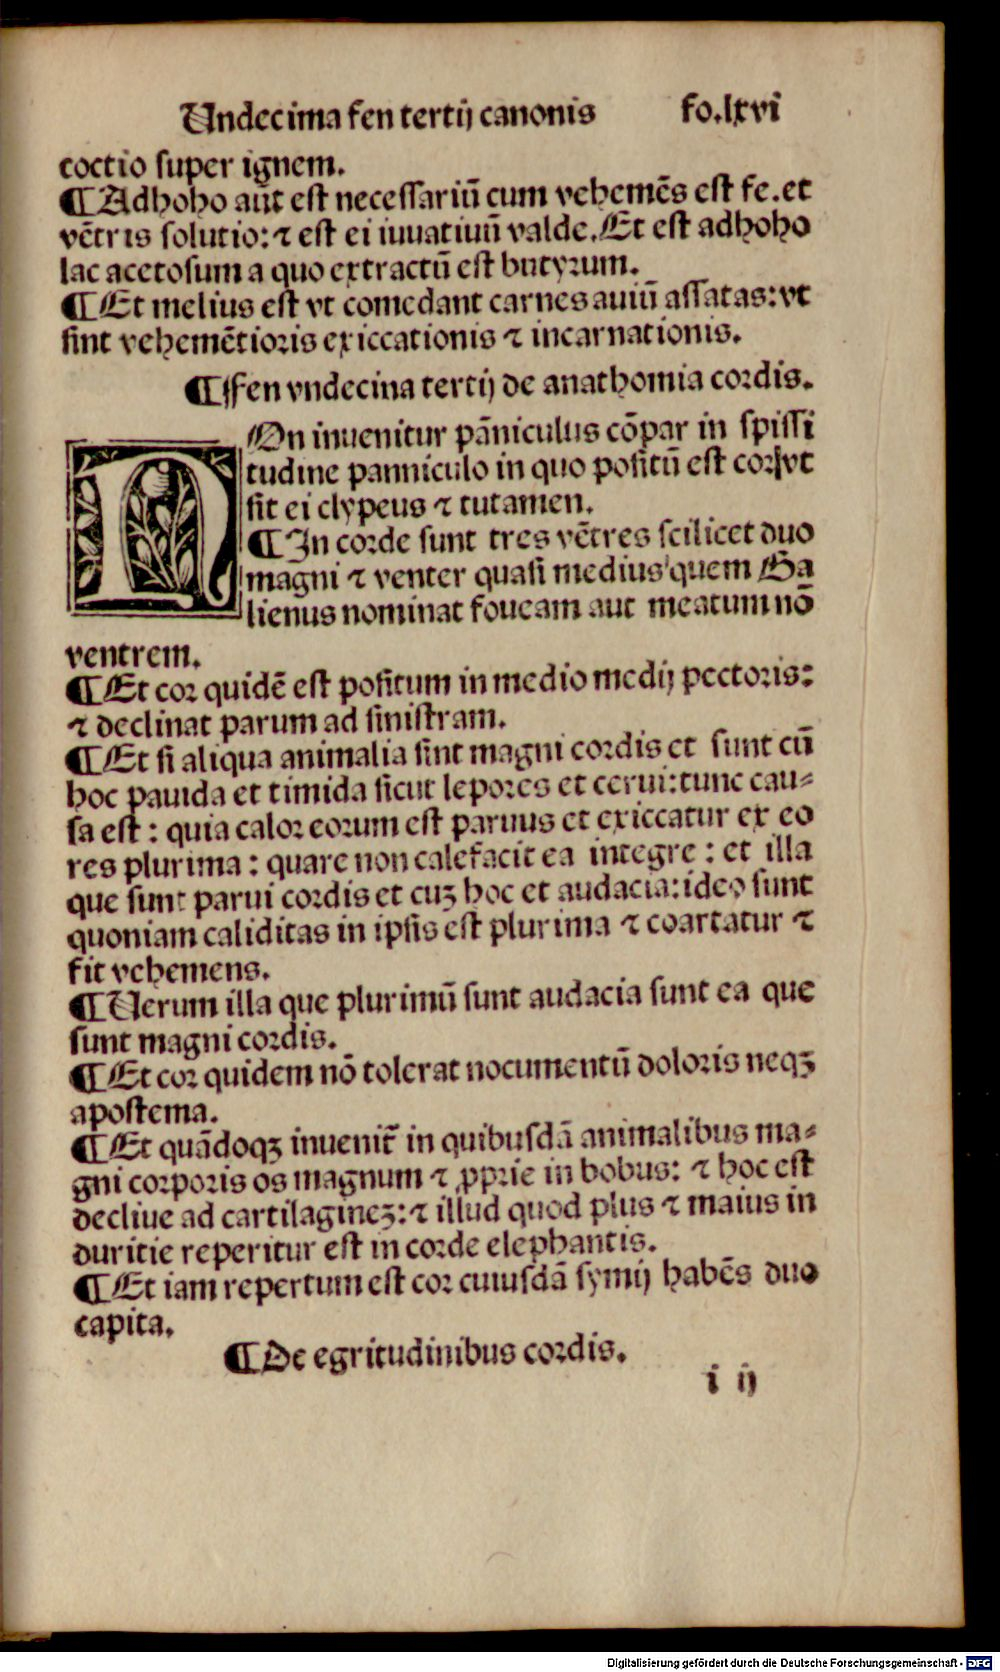 Undecima fen tertij canonis fo.lxvi
coctio super ignem.
¶ Adhoho aūt est necessariū cum vehemēs est fe. et
vētris solutio: ⁊ est ei iuuatiuū valde. Et est adhoho
lac acetosum a quo extractū est butyrum.
¶ Et melius est vt comedant carnes auiū assatas: vt
sint vehemētioris exiccationis ⁊ incarnationis.
¶ Fen vndecina tertij de anathomia cordis.
NOn inuenitur pāniculus cōpar in spissi
tudine panniculo in quo positū est cor/vt
sit ei clypeus ⁊ tutamen.
¶ In corde sunt tres vētres scilicet duo
magni ⁊ venter quasi medius quem Ga
lienus nominat foueam aut meatum nō
ventrem.
¶ Et cor quidē est positum in medio medij pectoris:
⁊ declinat parum ad sinistram.
¶ Et si aliqua animalia sint magni cordis et sunt cū
hoc pauida et timida sicut lepores et cerui: tunc cau-
sa est : quia calor eorum est paruus et exiccatur ex eo
res plurima : quare non calefacit ea integre : et illa
que sunt parui cordis et cuꝫ hoc et audacia: ideo sunt
quoniam caliditas in ipsis est plurima ⁊ coartatur ⁊
fit vehemens.
¶ Uerum illa que plurimū sunt audacia sunt ea que
sunt magni cordis.
¶ Et cor quidem nō tolerat nocumentū doloris neqꝫ
apostema.
¶ Et quādoqꝫ inuenit̄ in quibusdā animalibus ma-
gni corporis os magnum ⁊ ꝓprie in bobus: ⁊ hoc est
decliue ad cartilagineꝫ: ⁊ illud quod plus ⁊ maius in
duritie reperitur est in corde elephantis.
¶ Et iam repertum est cor cuiusdā symij habēs duo
capita.
¶ De egritudinibus cordis.
i ij
Digitalisierung gefördert durch die Deutsche Forschungsgemeinschaft - DFG